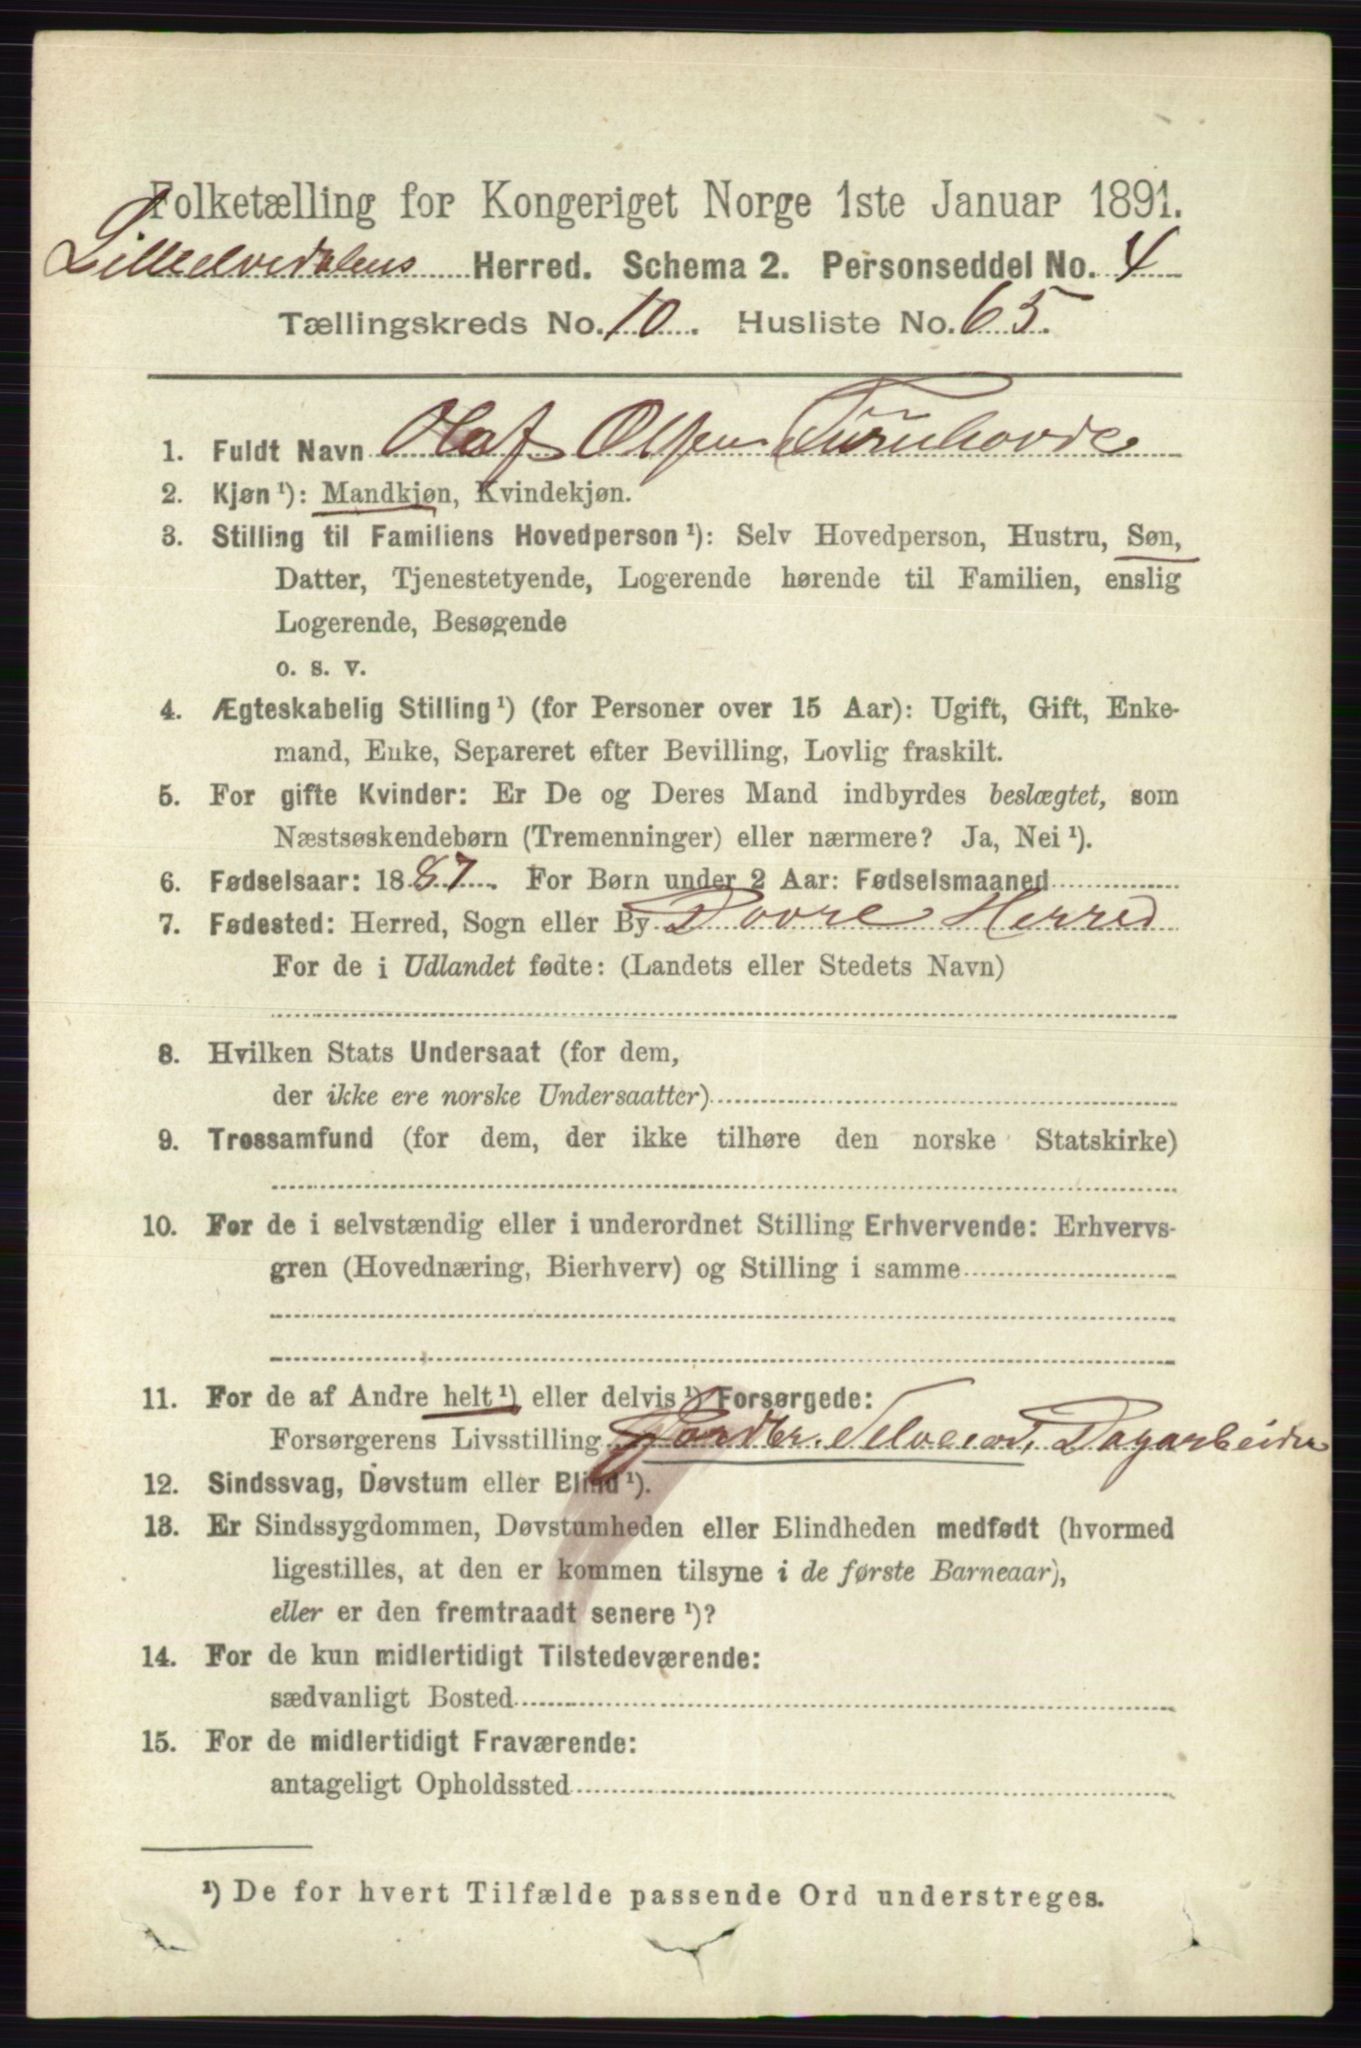 Folketælling for Kongeriget Norge 1ste Januar 1891.
Lilleelvedalens Herred. Schema 2. Personseddel No. 4
Tællingskreds No. 10. Husliste No. 65.
1. Fuldt Navn Olaf Olsen
2. Kjøn ¹): Mandkjøn, Kvindekjøn.
3. Stilling til Familiens Hovedperson ¹): Selv Hovedperson, Hustru, Søn,
Datter, Tjenestetyende, Logerende hørende til Familien, enslig
Logerende, Besøgende
o. s. v.
4. Ægteskabelig Stilling ¹) (for Personer over 15 Aar): Ugift, Gift, Enke-
mand, Enke, Separeret efter Bevilling, Lovlig fraskilt.
5. For gifte Kvinder: Er De og Deres Mand indbyrdes beslægtet, som
Næstsøskendebørn (Tremenninger) eller nærmere? Ja, Nei ¹).
6. Fødselsaar: 1887. For Børn under 2 Aar: Fødselsmaaned
7. Fødested: Herred, Sogn eller By Dovre Herred
For de i Udlandet fødte: (Landets eller Stedets Navn)
8. Hvilken Stats Undersaat (for dem,
der ikke ere norske Undersaatter)
9. Trossamfund (for dem, der ikke tilhøre den norske Statskirke)
10. For de i selvstændig eller i underordnet Stilling Erhvervende: Erhvervs-
gren (Hovednæring, Bierhverv) og Stilling i samme
11. For de af Andre helt ¹) eller delvis ¹) Forsørgede:
Forsørgerens Livsstilling Jordbr. Selveier, Dagarbeider
12. Sindssvag, Døvstum eller Blind ¹).
13. Er Sindssygdommen, Døvstumheden eller Blindheden medfødt (hvormed
ligestilles, at den er kommen tilsyne i de første Barneaar),
eller er den fremtraadt senere ¹)?
14. For de kun midlertidigt Tilstedeværende:
sædvanligt Bosted
15. For de midlertidigt Fraværende:
antageligt Opholdssted
¹) De for hvert Tilfælde passende Ord understreges.